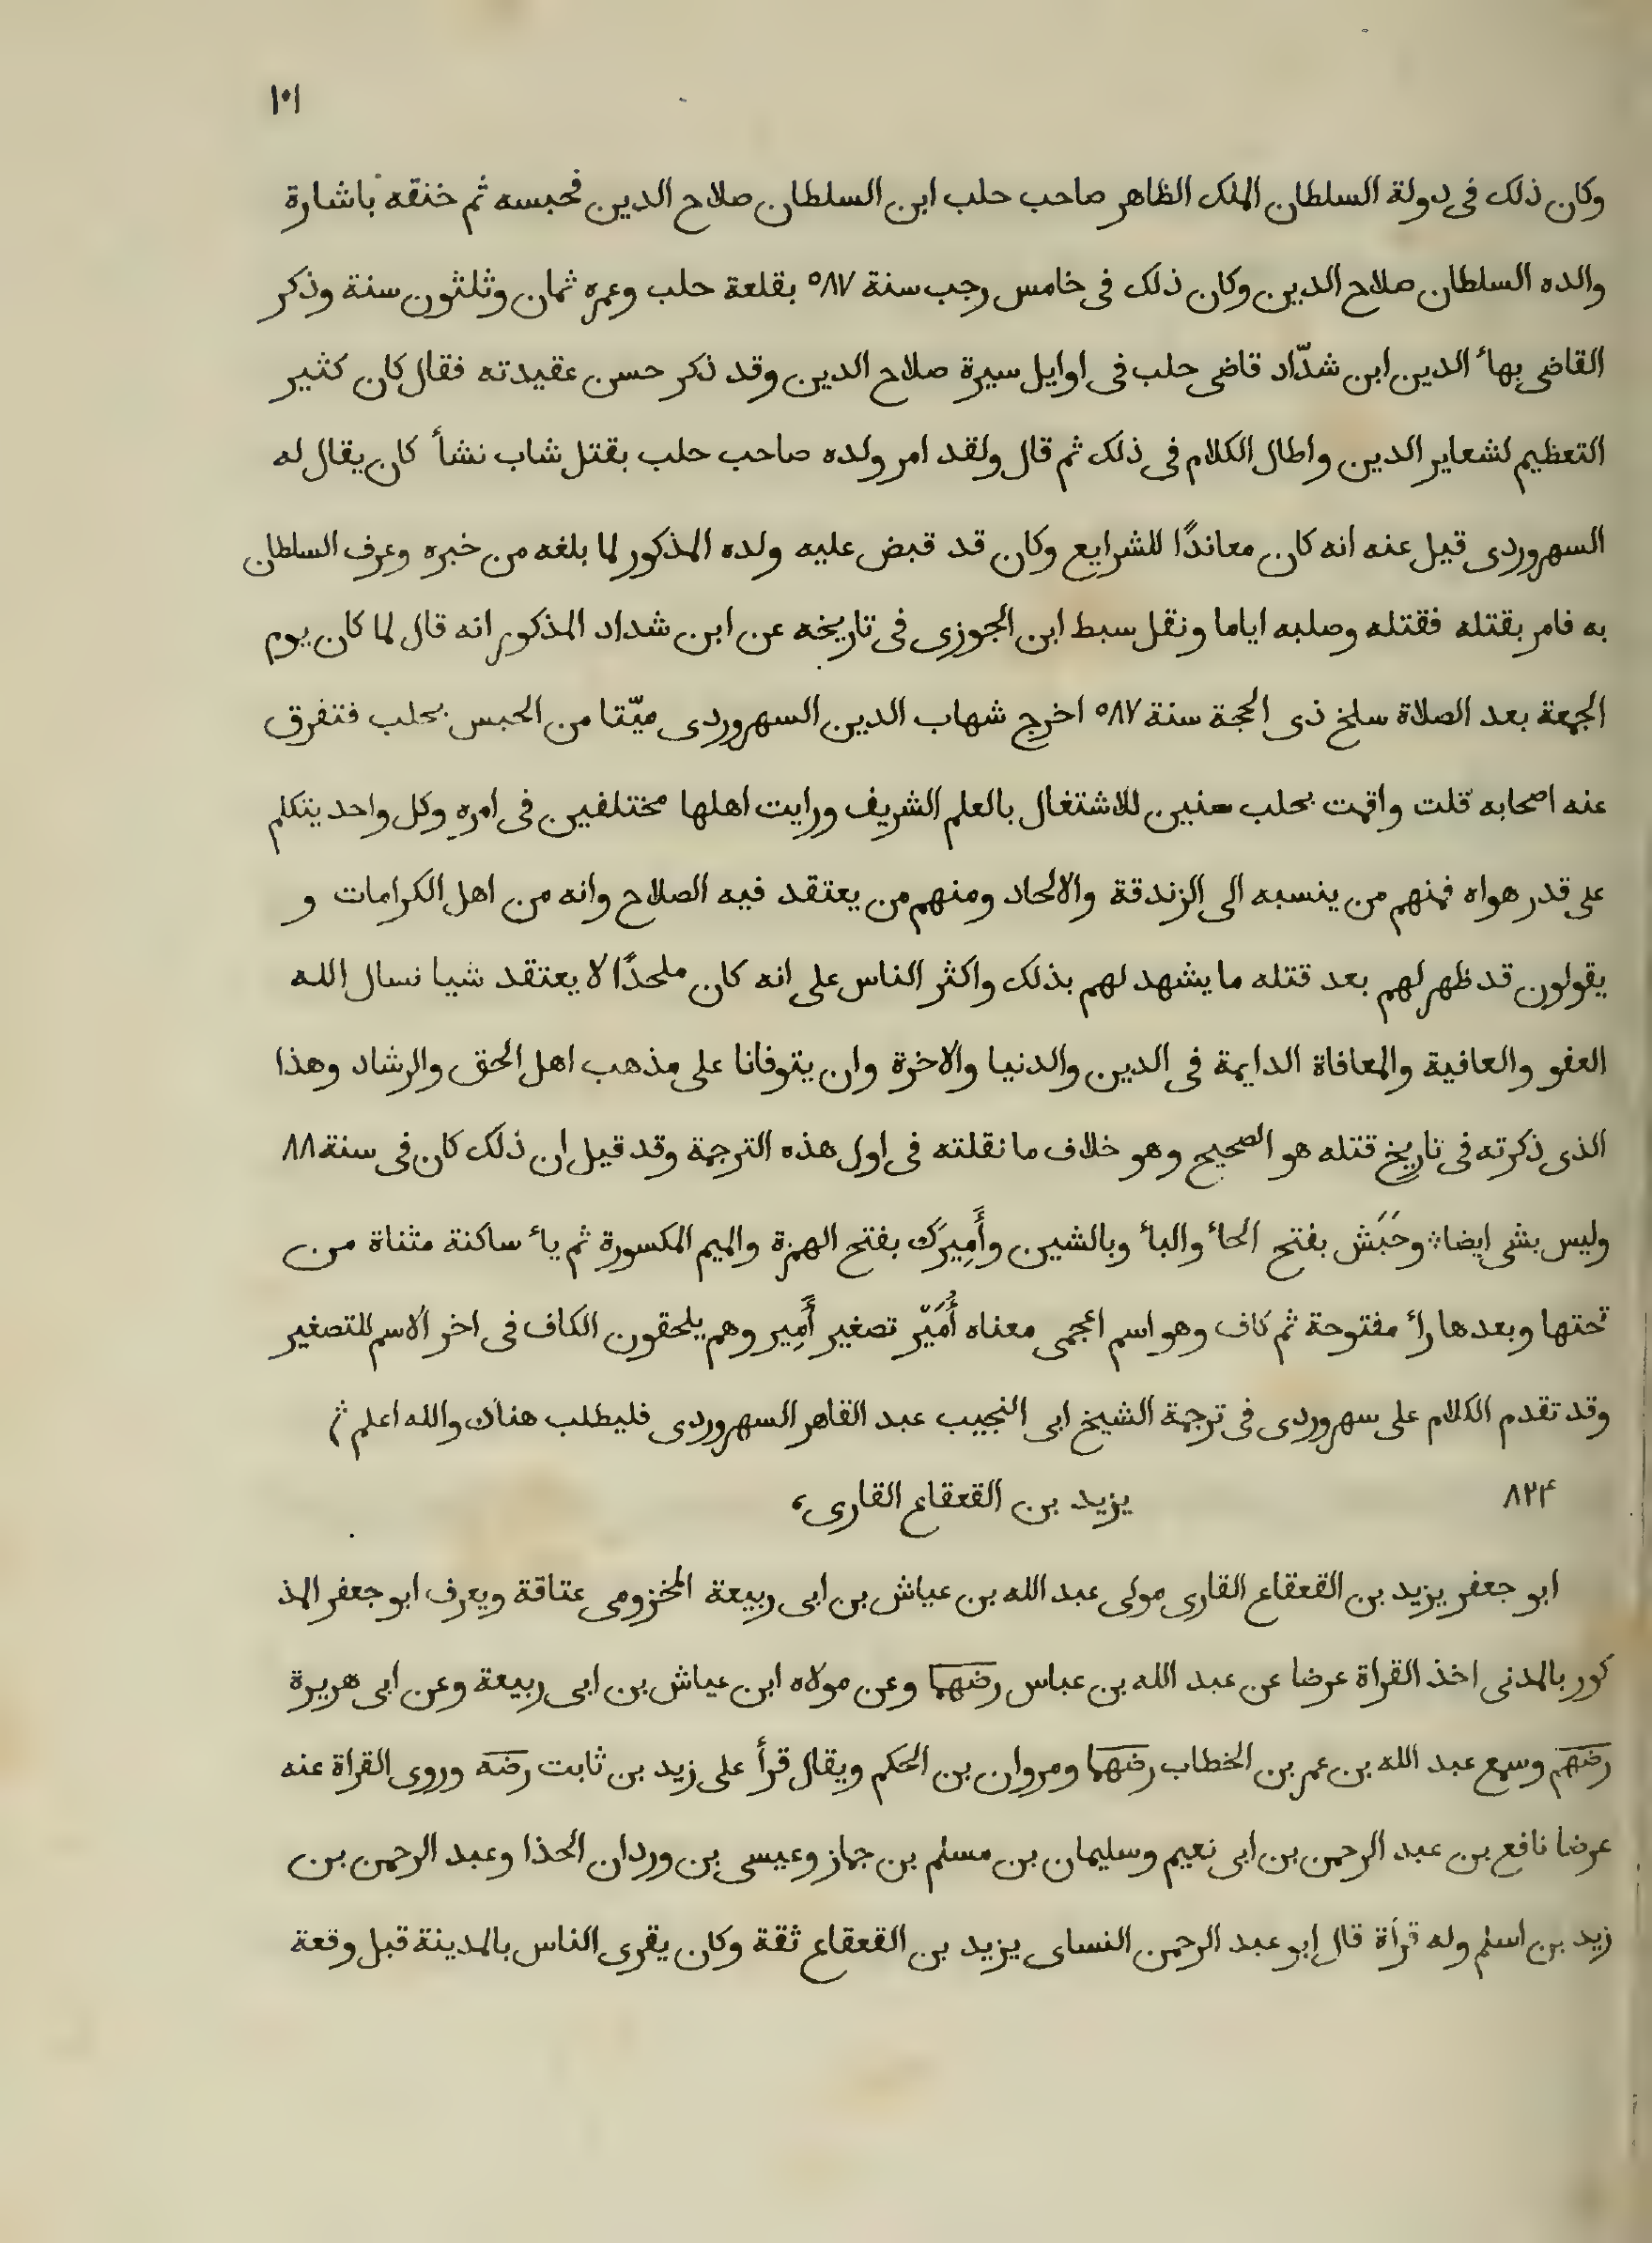 ١٠١
وكان ذلك فى دولة السلطان الملك الظاهر صاحب حلب ابن السلطان صلاح الدين فحبسه ثم خنقه باشارة
والده السلطان صلاح الدين وكان ذلك فى خامس رجب سنة ٥٨٧ بقلعة حلب وعمره ثمان وثلثون سنة وذكر
القاضى بهاء الدين ابن شدّاد قاضى حلب فى اوايل سيرة صلاح الدين وقد ذكر حسن عقيدته فقال كان كثير
التعظيم لشعاير الدين واطال الكلام فى ذلك ثم قال ولقد امر ولده صاحب حلب بقتل شاب نشأ كان يقال له
السهروردى قيل عنه انه كان معاندًا للشرايع وكان قد قبض عليه ولده المذكور لما بلغه من خبره وعرف السلطان
به فامر بقتله فقتله وصلبه اياما ونقل سبط ابن الجوزى فى تاريخه عن ابن شداد المذكور انه قال لما كان يوم
الجمعة بعد الصلاة سلخ ذى الحجة سنة ٥٨٧ اخرج شهاب الدين السهروردى ميّتا من الحبس بحلب فتفرق
عنه اصحابه قلت واقمت بحلب سنين للاشتغال بالعلم الشريف ورايت اهلها مختلفين فى امره وكل واحد يتكلم
على قدر هواه فمنهم من ينسبه الى الزندقة والالحاد ومنهم من يعتقد فيه الصلاح وانه من اهل الكرامات و
يقولون قد ظهر لهم بعد قتله ما يشهد لهم بذلك واكثر الناس على انه كان ملحدًا لا يعتقد شيا نسال الله
العفو والعافية والمعافاة الدايمة فى الدين والدنيا والاخرة وان يتوفانا على مذهب اهل الحق والرشاد وهذا
الذى ذكرته فى تاريخ قتله هو الصحيح وهو خلاف ما نقلته فى اول هذه الترجمة وقد قيل ان ذلك كان فى سنة ٨٨
وليس بشى ايضا ۞ وحَبَش بفتح الحاء والباء وبالشين وأَمِيرَك بفتح الهمزة والميم المكسورة ثم ياء ساكنة مثناة من
تحتها وبعدها راء مفتوحة ثم كاف وهو اسم اعجمى معناه أُمَيّر تصغير أَمِير وهم يلحقون الكاف فى اخر الاسم للتصغير
وقد تقدم الكلام على سهروردى فى ترجمة الشيخ ابى النجيب عبد القاهر السهروردى فليطلب هناك والله اعلم
٨٢۴ يزيد بن القعقاع القارى،
ابو جعفر يزيد بن القعقاع القارى مولى عبد الله بن عياش بن ابى ربيعة المخزومى عتاقة ويعرف ابو جعفر المذ
كور بالمدنى اخذ القراة عرضا عن عبد الله بن عباس رضهما وعن مولاه ابن عياش بن ابى ربيعة وعن ابى هريرة
رضهم وسمع عبد الله بن عمر بن الخطاب رضهما ومروان بن الحكم ويقال قرأ على زيد بن ثابت رضه وروى القراة عنه
عرضا نافع بن عبد الرحمن بن ابى نعيم وسليمان بن مسلم بن جماز وعيسى بن وردان الحذا وعبد الرحمن بن
زيد بن اسلم وله قرأة قال ابو عبد الرحمن النساى يزيد بن القعقاع ثقة وكان يقرى الناس بالمدينة قبل وقعة